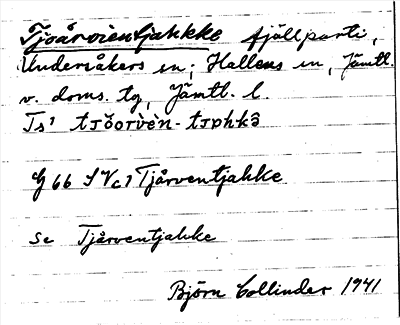 Tjoårvientjahkke fjällparti,
Undersåkers sn; Hallens sn, Jämtl.
v. doms. tg, Jämtl. l.
Ts¹ tjŏorvèn-tjɒhkə̑
G 66 SVc, Tjårventjahke
Se Tjårventjahke
Björn Collinder 1941